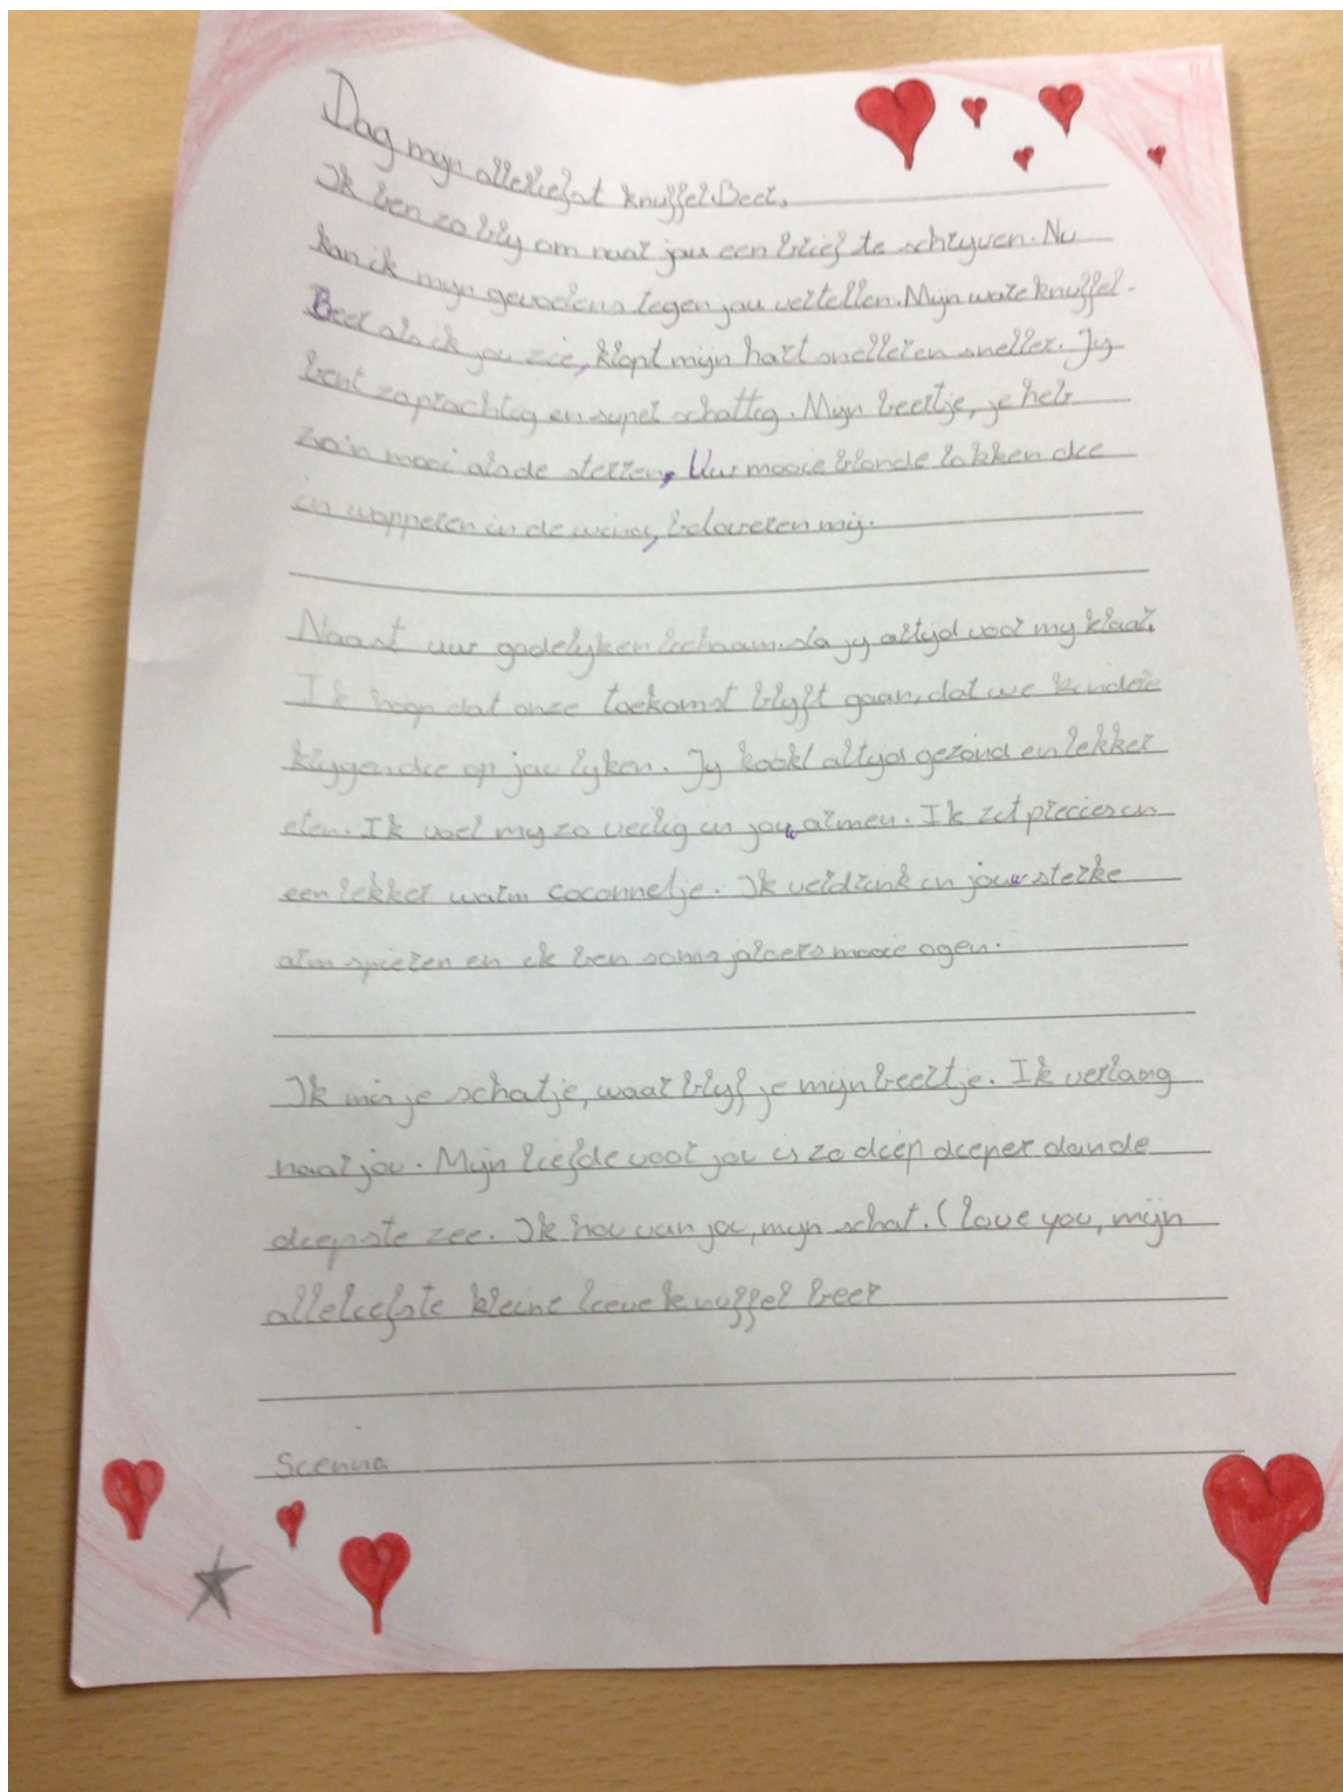 Dag mijn alleliefst knuffelBeer,
Ik ben zo blij om naar jou een brief te schrijven. Nu
kan ik mijn gevoelens tegen jou vertellen. Mijn ware knuffel-
Beer als ik jou zie, klopt mijn hart sneller en sneller. Jij
bent zo prachtig en super schattig. Mijn beertje, je heb
zo'n mooi als de sterren, Uw mooie blonde lokken die
in wapperen in de wind, betoveren mij.
Naast uw godelijken lichaam sta jij altijd voor mij klaar,
Ik hoop dat onze toekomst blijft gaan, dat we kindere
krijgen die op jou lijken. Jij kookt altijd gezond en lekker
eten. Ik voel mij zo veilig in jouw armen. Ik zit precies in
een lekker warm coconnetje. Ik verdrink in jouw sterke
arm spieren en ik ben soms jaloers mooie ogen.
Ik mis je schatje, waar blijf je mijn beertje. Ik verlang
naar jou. Mijn liefde voor jou is zo diep dieper dan de
diepste zee. Ik hou van jou, mijn schat. I love you, mijn
alleliefste kleine lieve knuffel beer